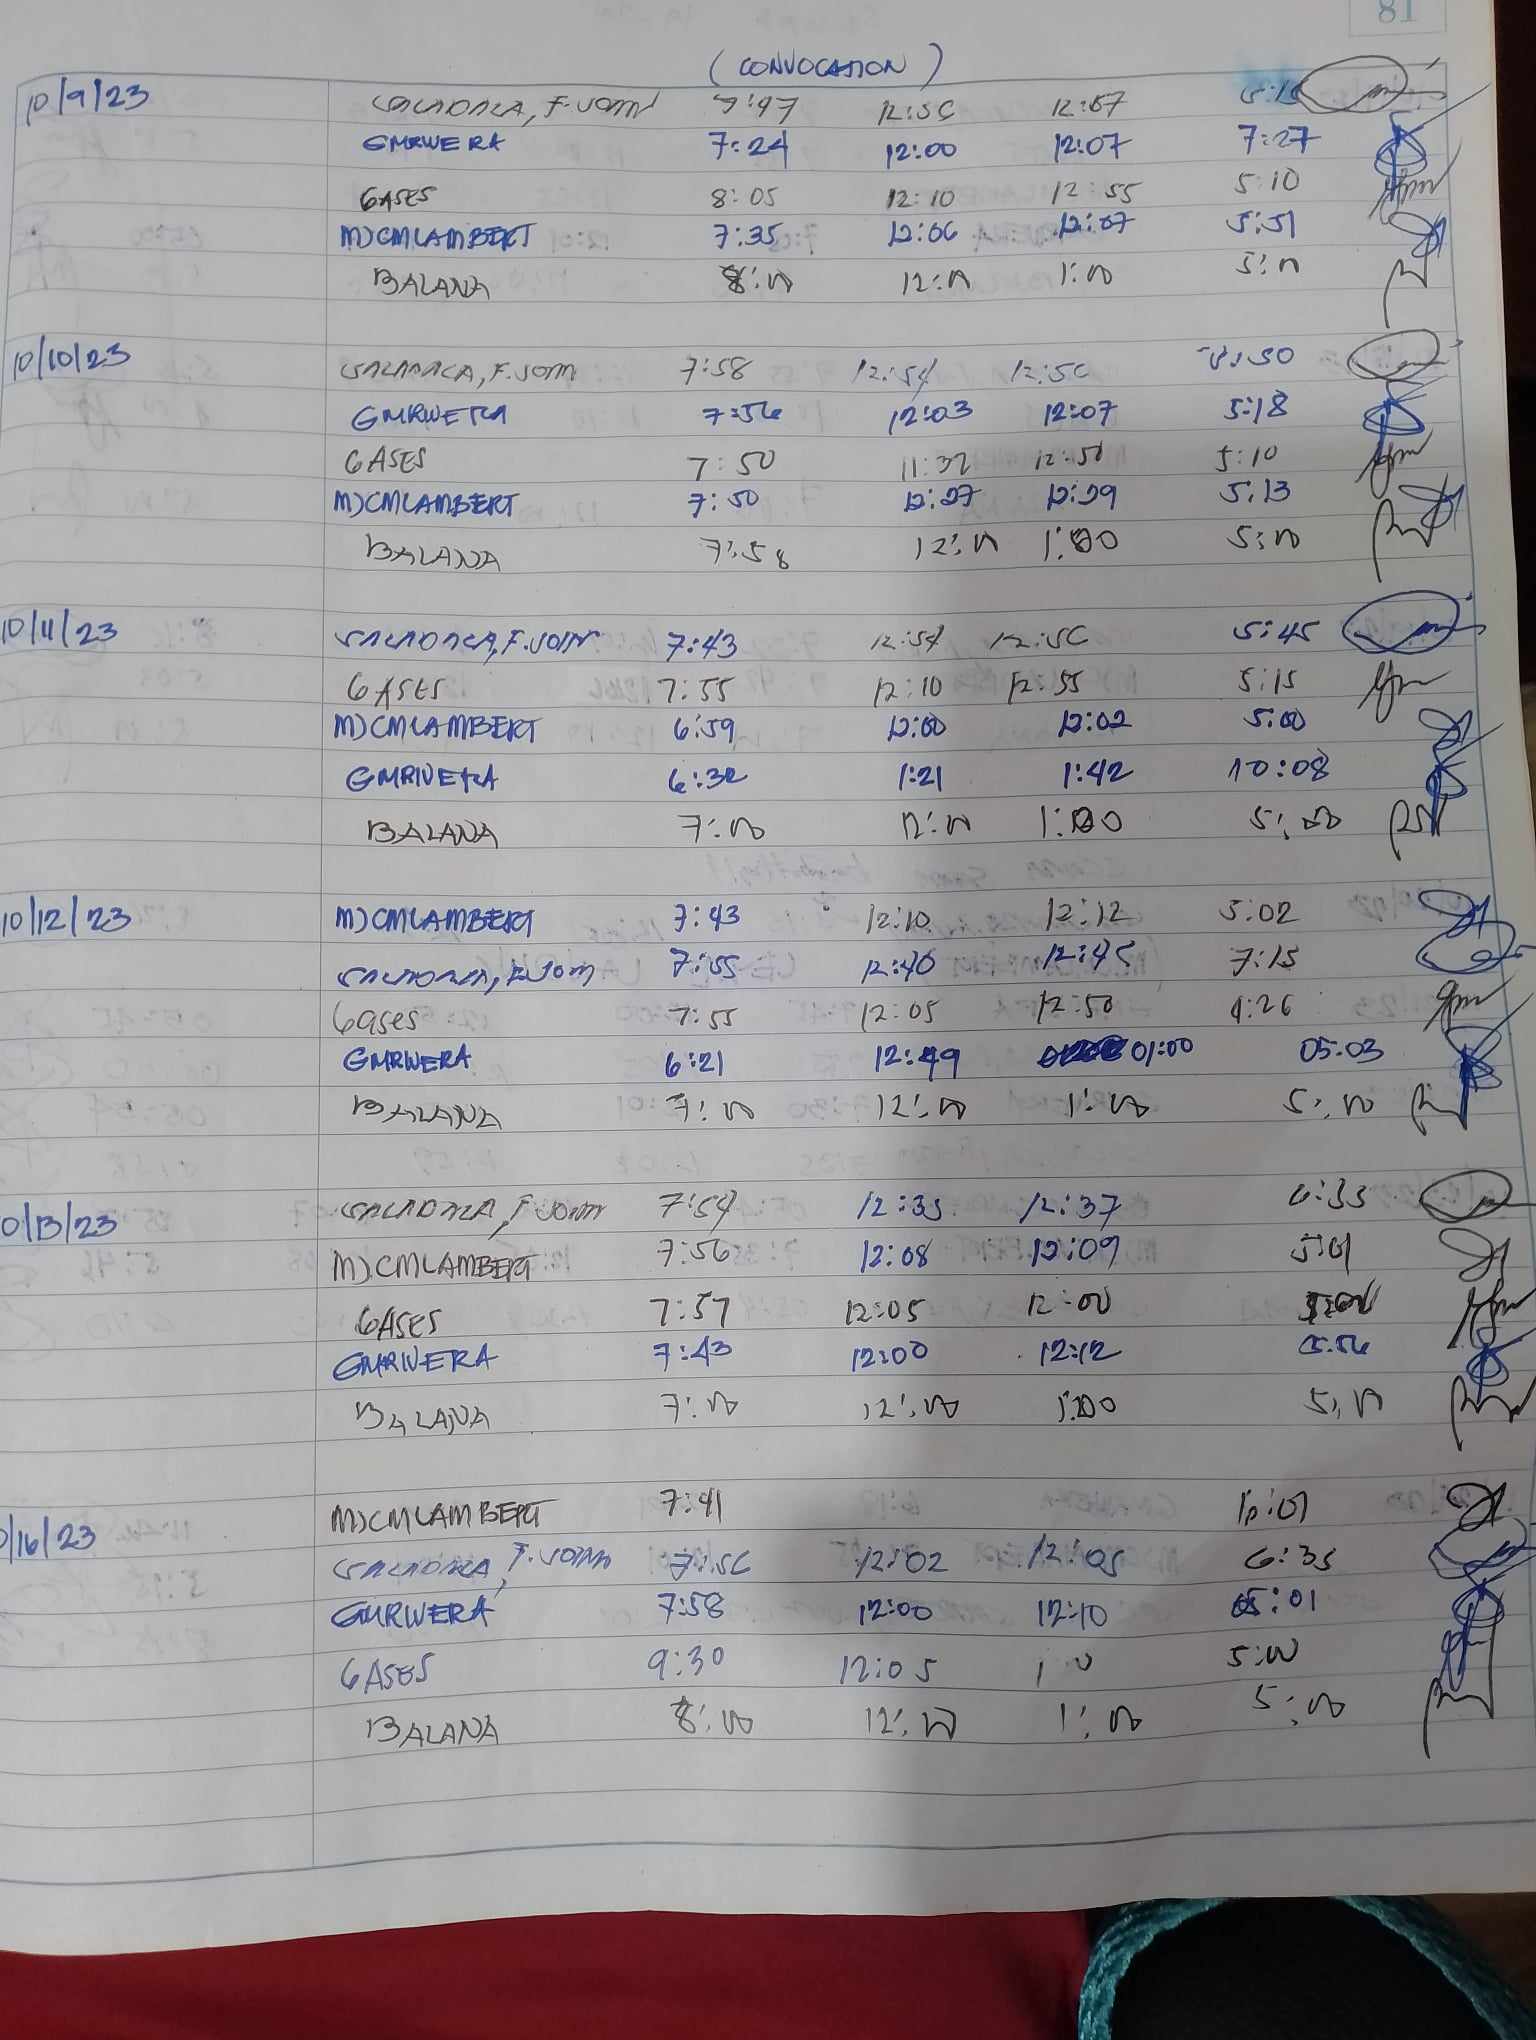 81
(CONVOCATION)
10/9/23 F. 7:47 12:56 12:57
GMRIVERA 7:24 12:00 12:07 7:27
GASES 8:05 12:10 12:55 5:10
MJCMLAMBERT 7:35 12:06 12:07 5:51
BALANA 8:00 12:00 1:00 5:00
10/10/23 F. 7:58 12:54 12:56
GMRIVERA 7:56 12:03 12:07 5:18
GASES 7:50 11:32 12:50 5:10
MJCMLAMBERT 7:50 12:27 12:29 5:13
BALANA 7:58 12:00 1:00 5:00
10/11/23 F. 7:43 12:54 12:56 5:45
GASES 7:55 12:10 12:55 5:15
MJCMLAMBERT 6:59 12:00 12:02 5:00
GMRIVERA 6:32 1:21 1:42 10:08
BALANA 7:00 12:00 1:00 5:00
10/12/23 MJCMLAMBERT 7:43 12:10 12:12 5:02
7:55 12:40 12:45 7:15
Gases 7:55 12:05 12:50 4:26
GMRIVERA 6:21 12:49 01:00 05:03
BALANA 7:00 12:00 1:00 5:00
0/13/23 F. 7:54 12:35 12:37 6:35
MJCMLAMBERT 7:56 12:08 12:09 5:01
GASES 7:57 12:05 12:00
GMRIVERA 7:43 12:00 12:12 5:56
BALANA 7:00 12:00 1:00 5:00
/16/23 MJCMLAMBERT 7:41
F. 7:56 12:02 12:05 6:35
GMRIVERA 7:58 12:00 12:10 05:01
GASES 9:30 12:05 5:00
BALANA 8:00 12:00 1:00 5:00